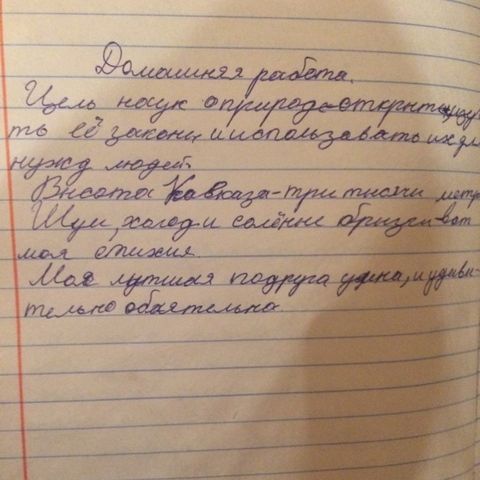 Домашняя работа.
Цель наук о природе-открыть, изу
ть её законы и использовать их для
нужд людей.
Высота Кавказа-три тысячи метр
Шум, холод и солёные брызги-вот
моя стихия.
Моя лутшая подруга умна, и удиви-
тельно обаятельна.